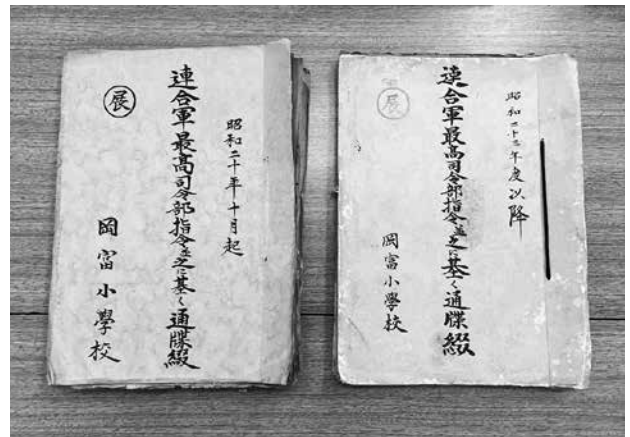 昭和二十年十月起
連合軍最高司令部指令並之に基く通牒綴
展
岡富小學校
昭和二十二年度以降
連合軍最高司令部指令並之に基く通牒綴
展
岡富小學校